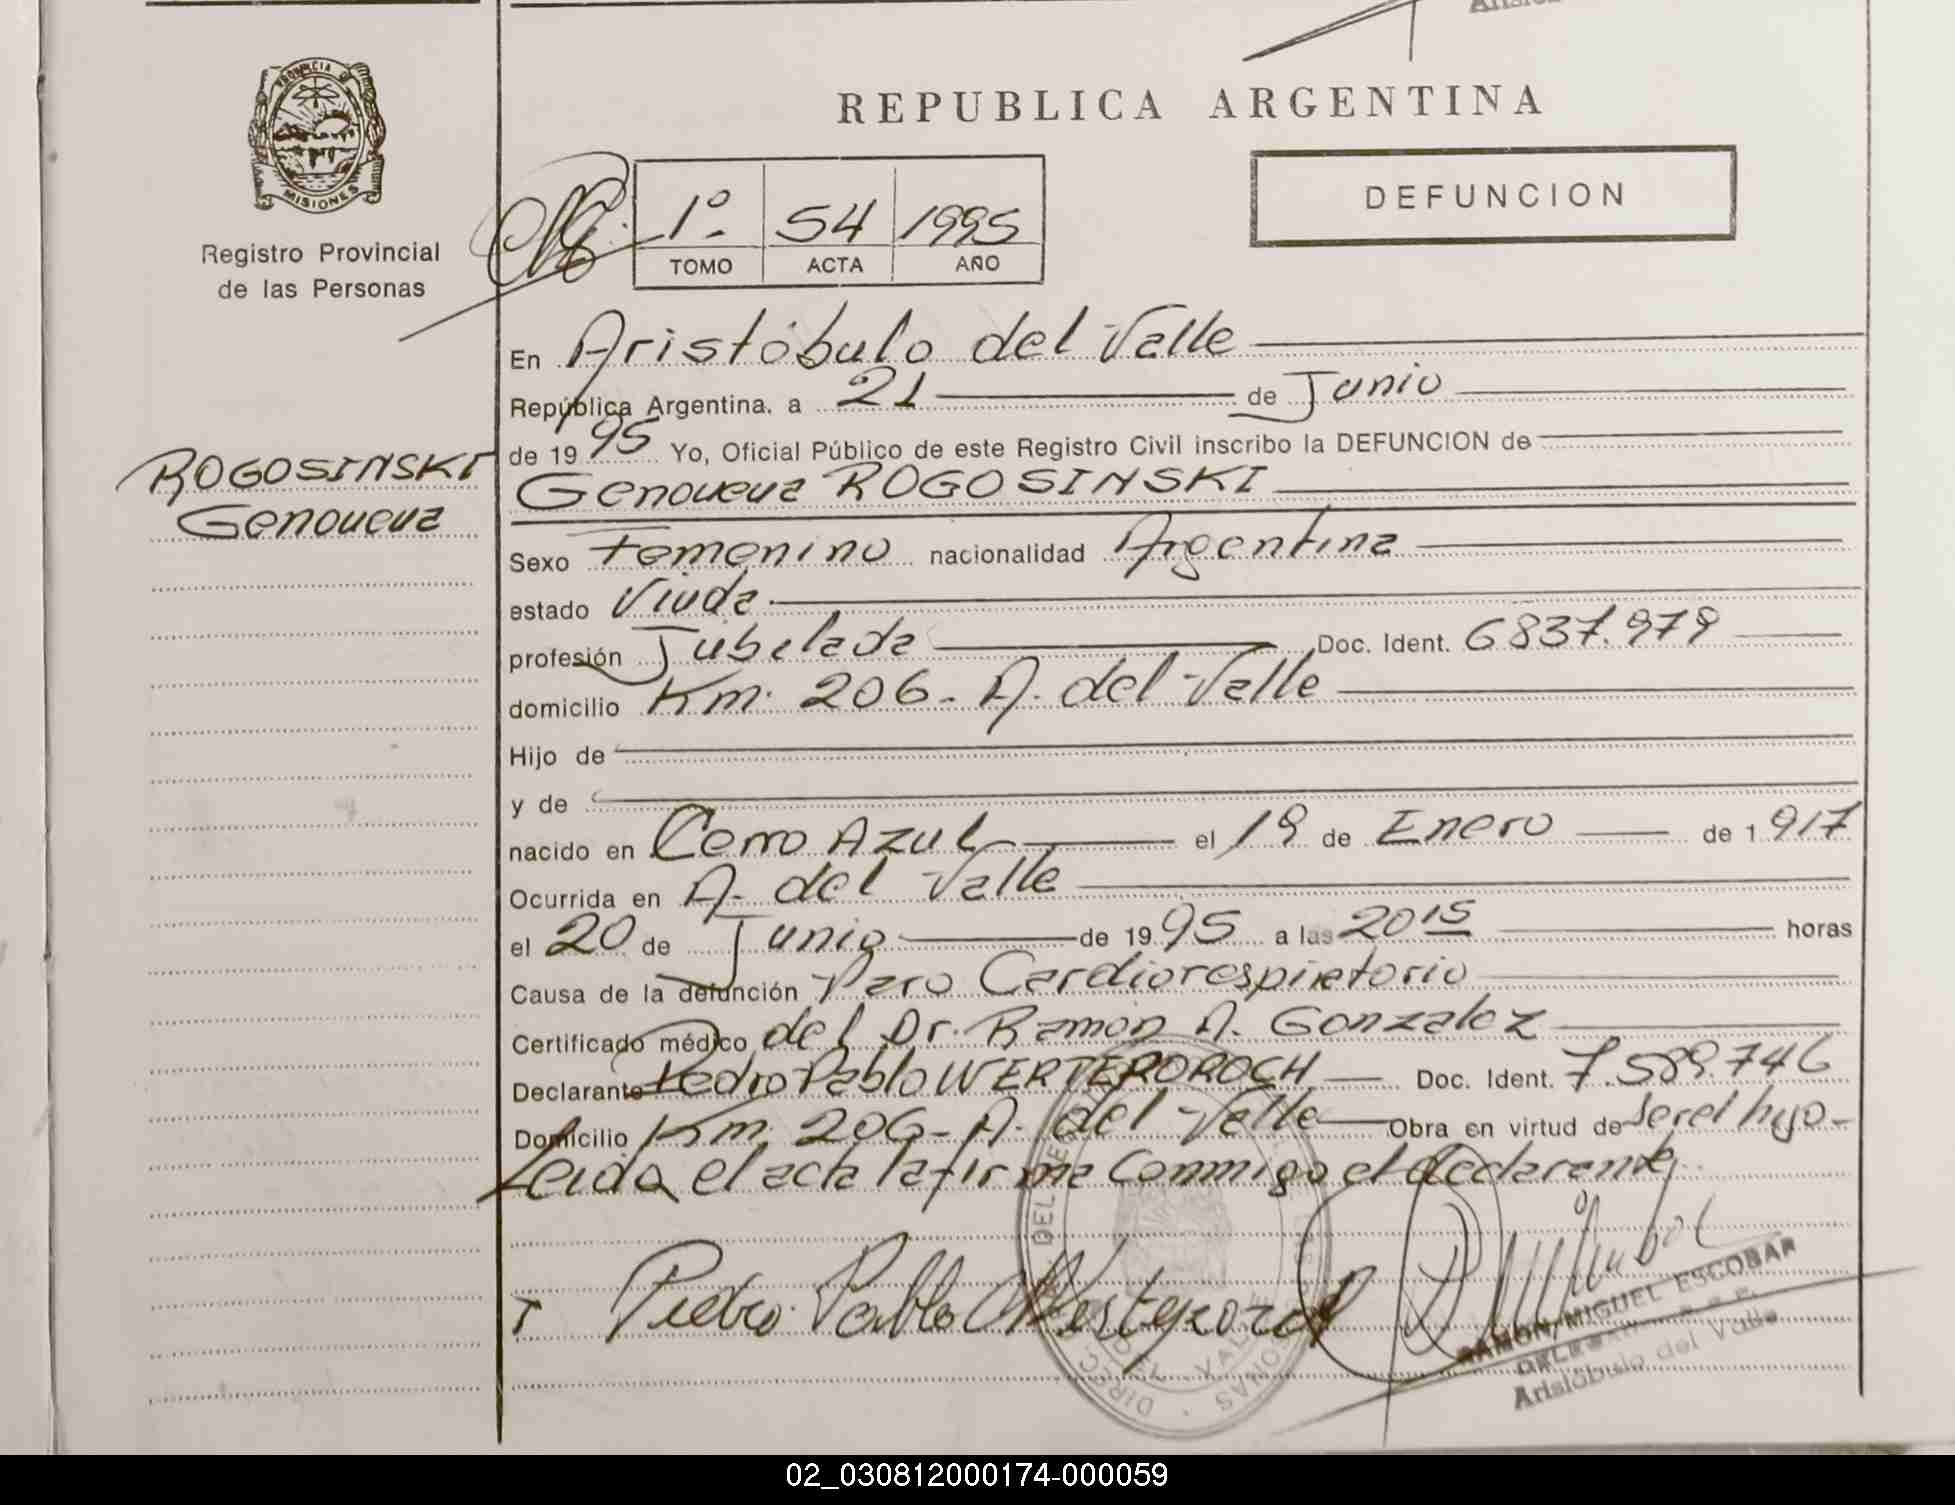 PROVINCIA DE
MISIONES
Registro Provincial
de las Personas
ROGOSINSKI
Genoveva
REPUBLICA ARGENTINA
DEFUNCION
1º 54 1995
TOMO ACTA AÑO
En Aristóbulo del Valle
República Argentina, a 21 de Junio
de 1995 Yo, Oficial Público de este Registro Civil inscribo la DEFUNCION de
Genoveva ROGOSINSKI
Sexo Femenino nacionalidad Argentina
estado Viuda
profesión Jubilada Doc. Ident. 6837.979
domicilio Km. 206 - A. del Valle
Hijo de
y de
nacido en Cerro Azul el 19 de Enero de 1917
Ocurrida en A. del Valle
el 20 de Junio de 1995 a las 20 15 horas
Causa de la defunción Paro Cardiorespiratorio
Certificado médico del Dr. Ramon A. Gonzalez
Declarante Pedro Pablo WERTEROROCH Doc. Ident. 7.589.746
Domicilio Km. 206 - A. del Valle Obra en virtud de ser el hijo -
Leida el acta la firma Conmigo el declarante
Pedro Pablo
RAMON MIGUEL ESCOBAR
Aristóbulo del Valle
02_030812000174-000059